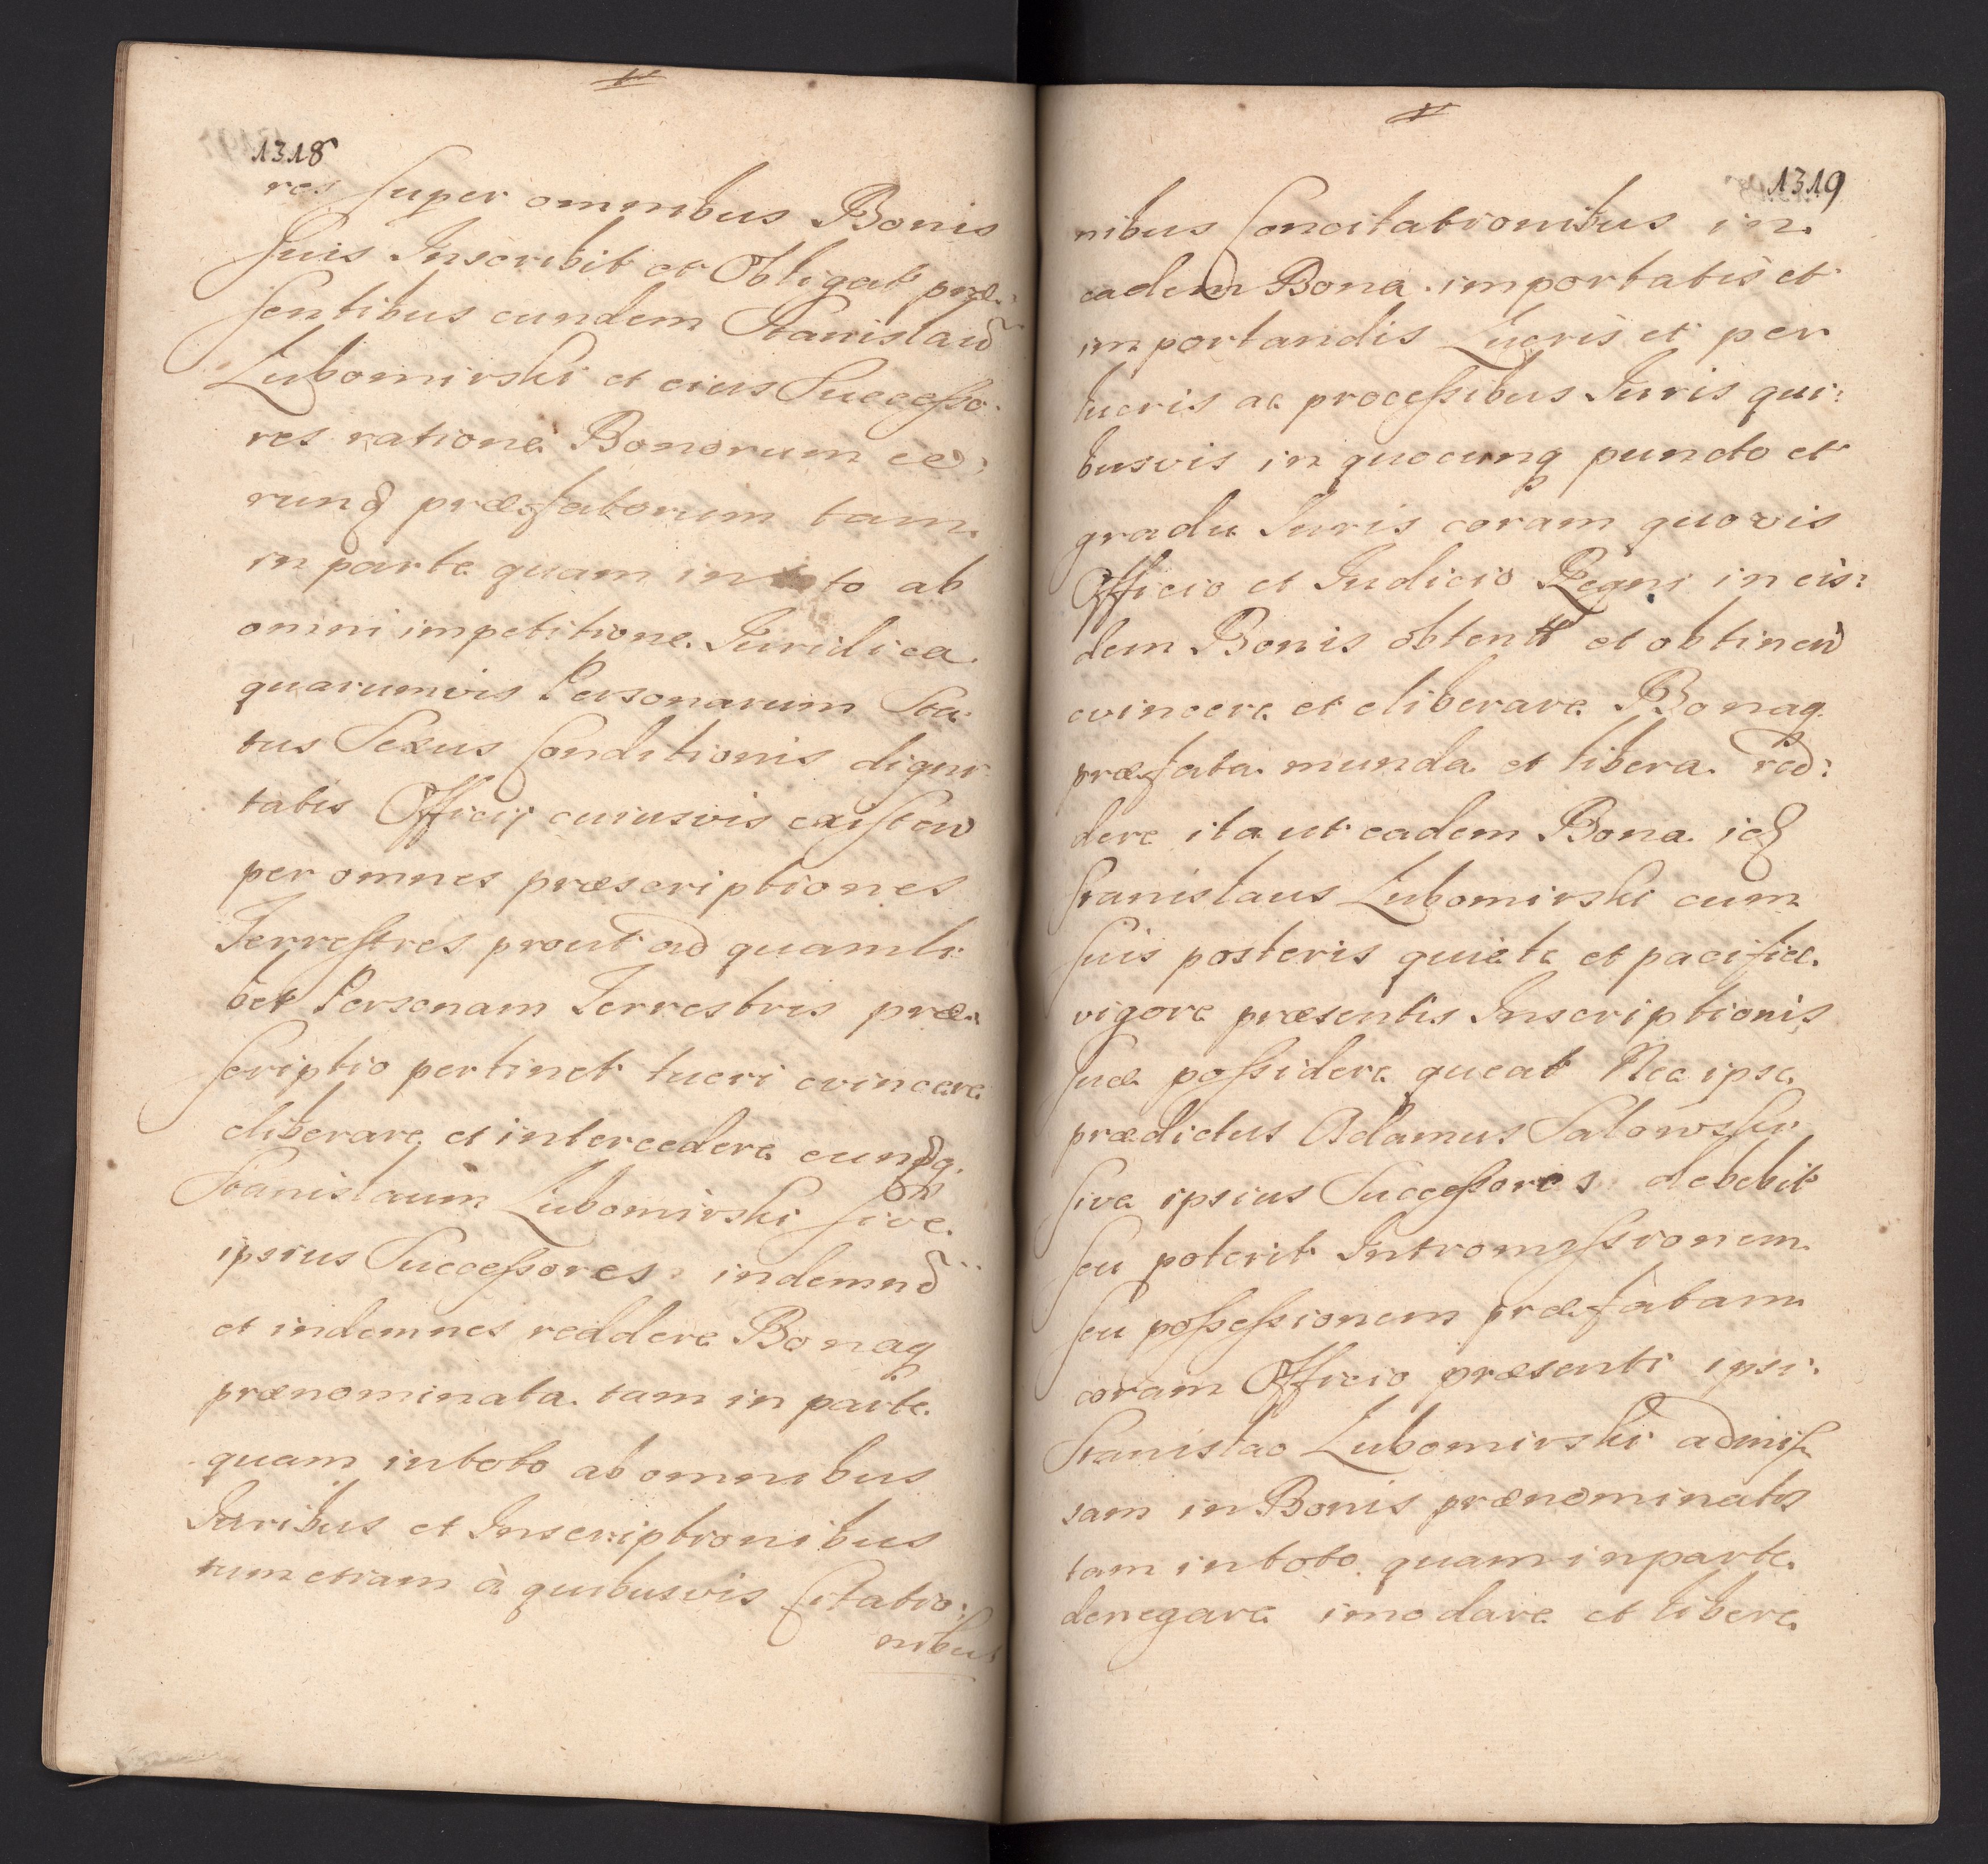 1318
res super omnibus Bonis
suis Inscribit et Obligat præ:
sentibus eundem Stanislaũ
Lubomirski et eius Successo:
res ratione Bonorum eo:
rund præfatorum tam
in parte quam in to to ab
omni impetitione Juridica
quarumvis Personarum Sta:
tus Sexus Conditionis digni:
tatis Officij cuiusvis existen
per omnes præscriptiones
Terrestres prout ad quamli:
bet Personam Terrestris præ:
scriptio pertinet tueri evincere
eliberare et intercedere eundq
Stanislaum Lubomirski sive
ipsius Successores indemnẽ
et indemnes reddere Bonaq
prænominata tam in parte
quam in toto ab omnibus
Juribus et Inscriptionibus
tum etiam à quibusvis Citatio:
nibus
1319
nibus Concitationibus in
eadem Bona importatis et
importandis Lucris et per
lucris ac processibus Juris qui:
busvis in quocunq puncto et
gradu Juris coram quovis
Officio et Judicio Regni in eis:
dem Bonis obtentt et obtinen
evincere et eliberare Bonaq
præfata munda et libera red:
dere ita ut eadem Bona id
Stanislaus Lubomirski cum
suis posteris quiete et pacifice
vigore præsentis Inscriptionis
suæ possidere queat Nec ipse
prædictus Adamus Salowski
sive ipsius Successores debebit
seu poterit Intromissionem
seu possessionem præfatam
coram Officio præsenti ipsi
Stanislao Lubomirski admis
sam in Bonis prænominatis
tam in toto quam in parte
denegare imo dare et libere